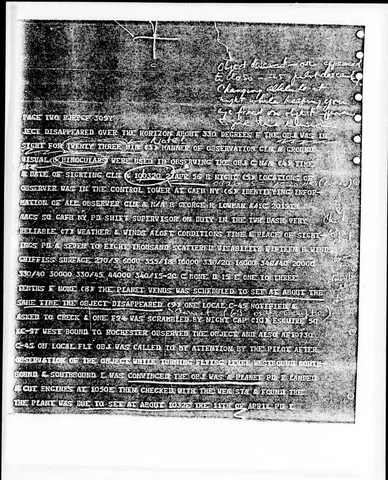 object descend - or appeared
to close - as pilot descends
Changing altitude at
night while keeping your
eye fixed on object
PAGE TWO RJEPGF 309Y
JECT DISAPPEARED OVER THE HORIZON ABOUT 330 DEGREES E THE OBJ WAS IN
SIGHT FOR TWENTY THREE MIN (5) MANNER OF OBSERVATION CLN A GROUND
VISUAL (8 BINOCULARS WERE USED IN OBSERVING THE OBJ C N/A (4) TIME
A DATE OF SIGHTING CLN A 10032Q APR 56 B NIGHT (5) LOCATIONS OF
OBSERVER WAS IN THE CONTROL TOWER AT GAFB NY (6) IDENTIFYING INFOR-
MATION OF ALL OBSERVER CLN A N/A B GEORGE R LOWMAN A1C 2019TH
AACS SQ GAFB NY PD SHIFT SUPERVISOR ON DUTY IN THE TWR DASH VERY
RELIABLE (7) WEATHER & WINDS ALOFT CONDITIONS TIME & PLACE OF SIGHT-
INGS PD A SEVEN TO EIGHT THOUSAND SCATTERED VISABILITY FIFTEEN B WINDS
GRIFFISS SURFACE 270/3 6000 355/18 10000 330/20 15000 340/40 20000
330/40 30000 330/45 44000 340/15-20 C NONE D 15 E ONE TO THREE
TENTHS F NONE (8) THE PLANET VENUS WAS SCHEDULED TO SET AT ABOUT THE
SAME TIME THE OBJECT DISAPPEARED (9) ONE LOCAL C-45 NOTIFIED &
ASKED TO CHECK & ONE F94 WAS SCRAMBLED BY NIGHT CAP (10) ESQUIRE 52
KC-97 WEST BOUND TO ROCHESTER OBSERVED THE OBJECT AND ALSO
C-45 ON LOCAL FLT OBJ WAS CALLED TO MY ATTENTION BY THE PILOT AFTER
OBSERVATION OF THE OBJECT WHILE TURNING FLYING LEVEL WESTBOUND NORTH
BOUND & SOUTHBOUND I WAS CONVINCED THE OBJ WAS A PLANET PD I LANDED
& CUT ENGINES AT 1050E THEN CHECKED WITH THE WEA STA & FOUND THE
THE PLANT WAS DUE TO SET AT ABOUT 1032E THE 11TH OF APRIL PD I